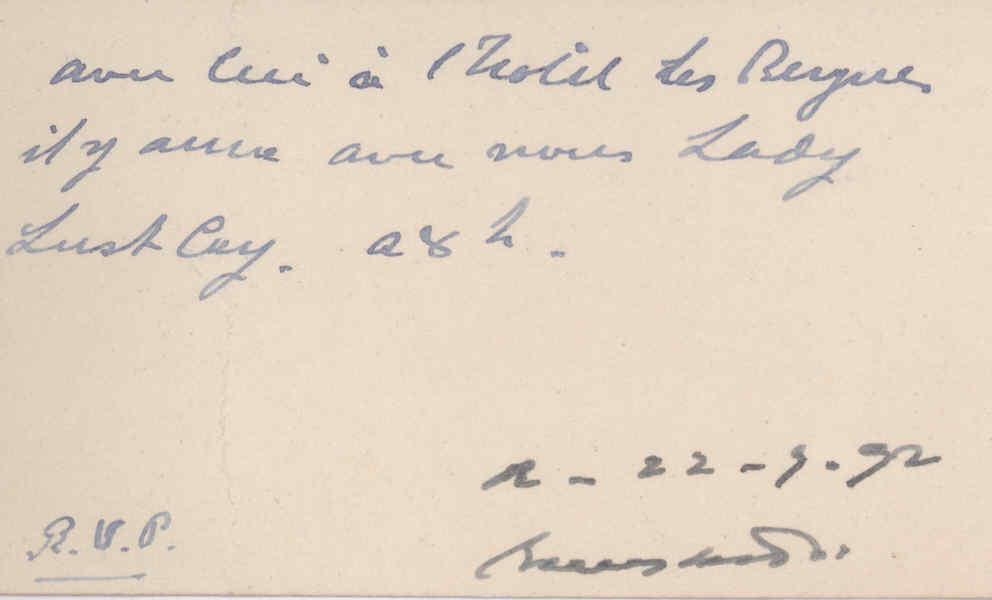 avec lui à l'hotel Les Bergues
il y aura avec nous Lady
Lust Cay. a 8 h.
R - 22-9-92
R.V.P.